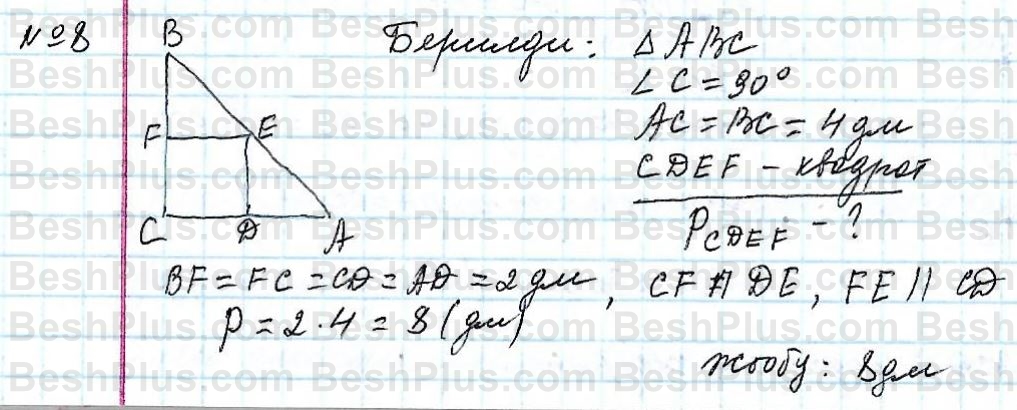 №8 Берилди: Δ ABC
∠C = 90°
AC = BC = 4 дм
CDEF – квадрат
P CDEF – ?
B
F E
C D A
BF = FC = CD = AD = 2 дм, CF ∥ DE, FE ∥ CD
P = 2 · 4 = 8 (дм)
Жообу: 8 дм
BeshPlus.com